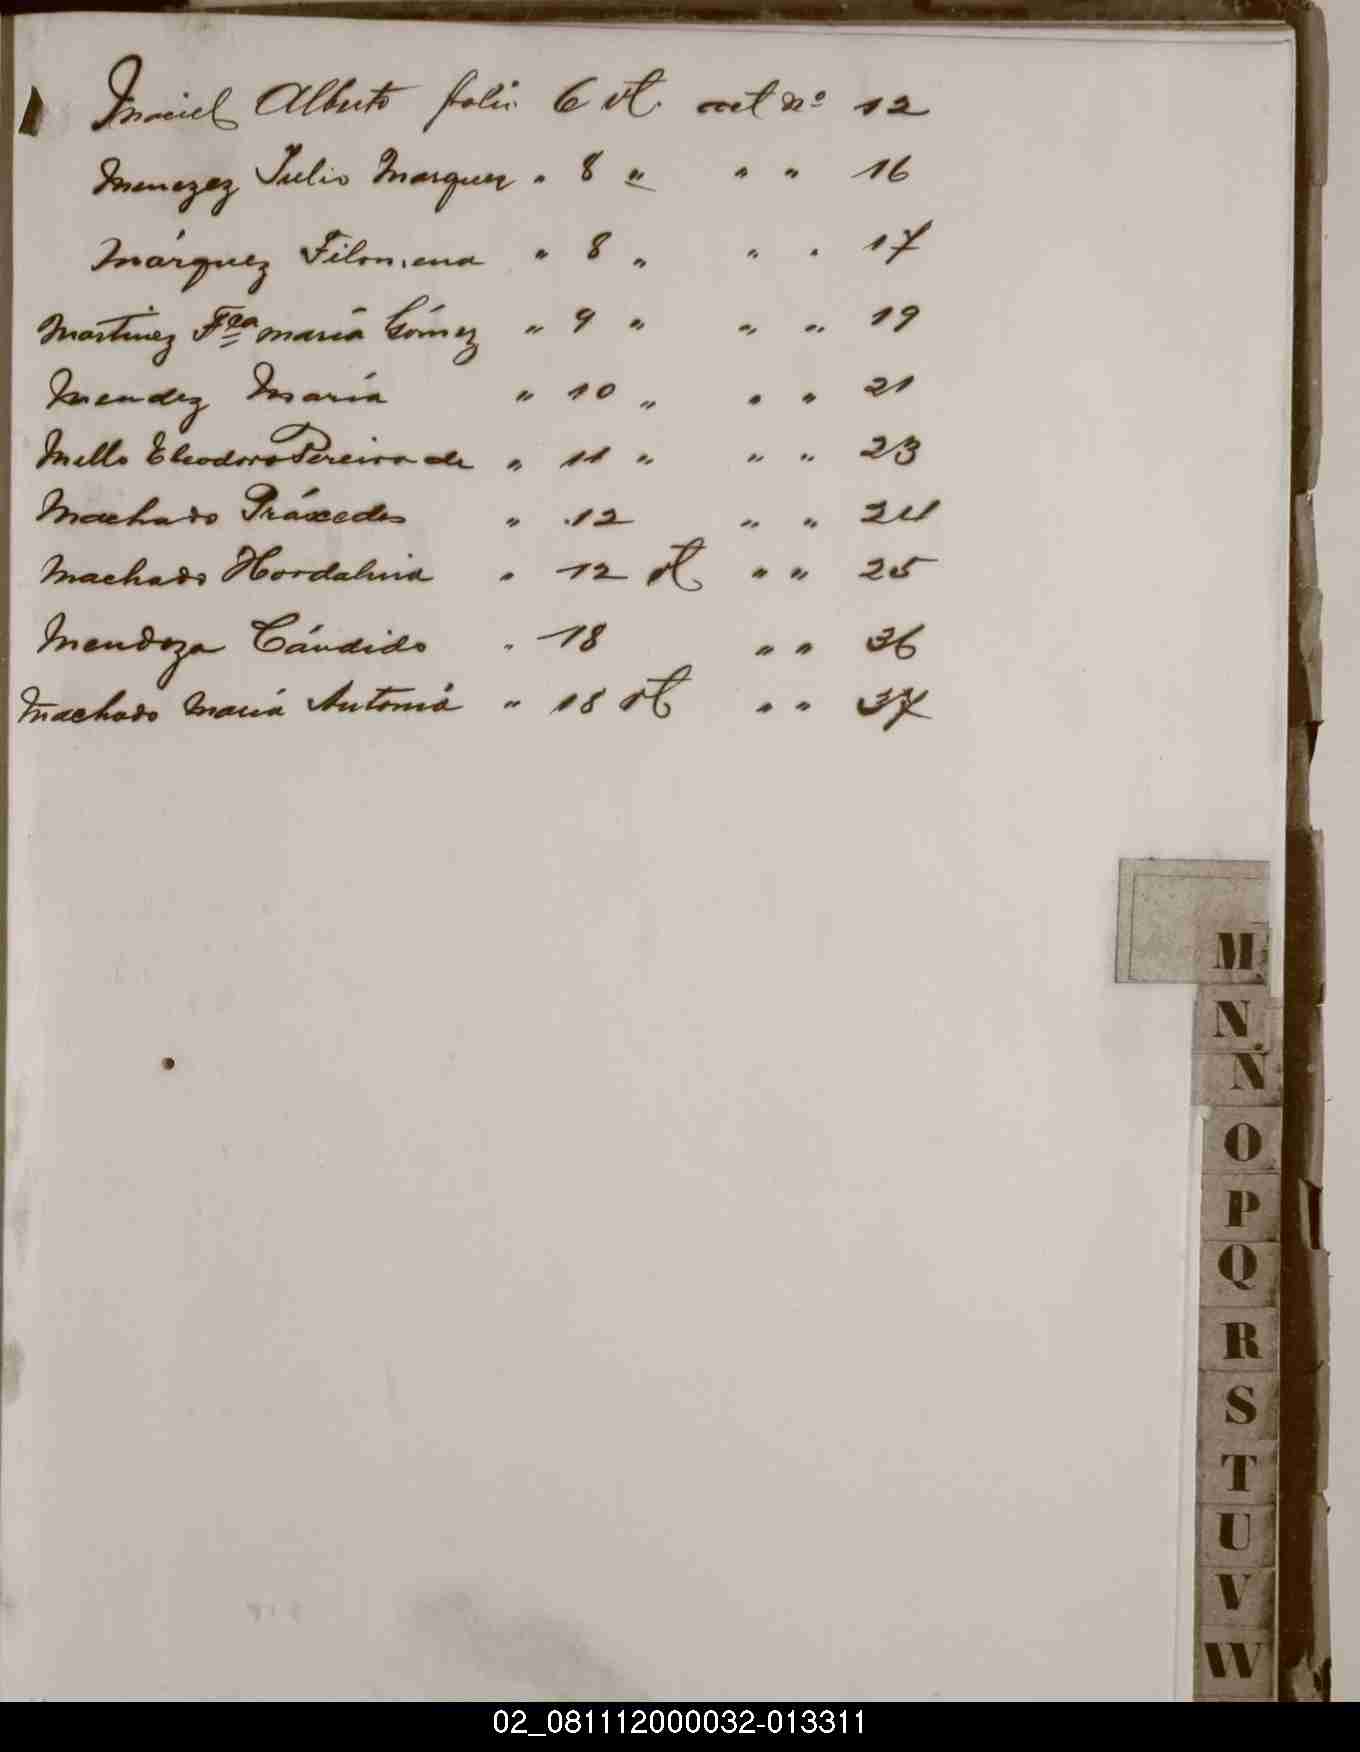 Maciel Alberto folio 6 vt. act nº 12
Menezez Julio Marquez " 8 " " " 16
Márquez Filomena " 8 " " " 17
Martinez Fca María Gómez " 9 " " " 19
Mendez María " 10 " " " 21
Mello Eleodoro Pereira de " 11 " " " 23
Machado Práxedes " 12 " " 24
Machado Hordalina " 12 vt " " 25
Mendoza Cándido " 18 " " 36
Machado María Antonia " 18 vt " " 37
M
N
Ñ
O
P
Q
R
S
T
U
V
W
02_081112000032-013311